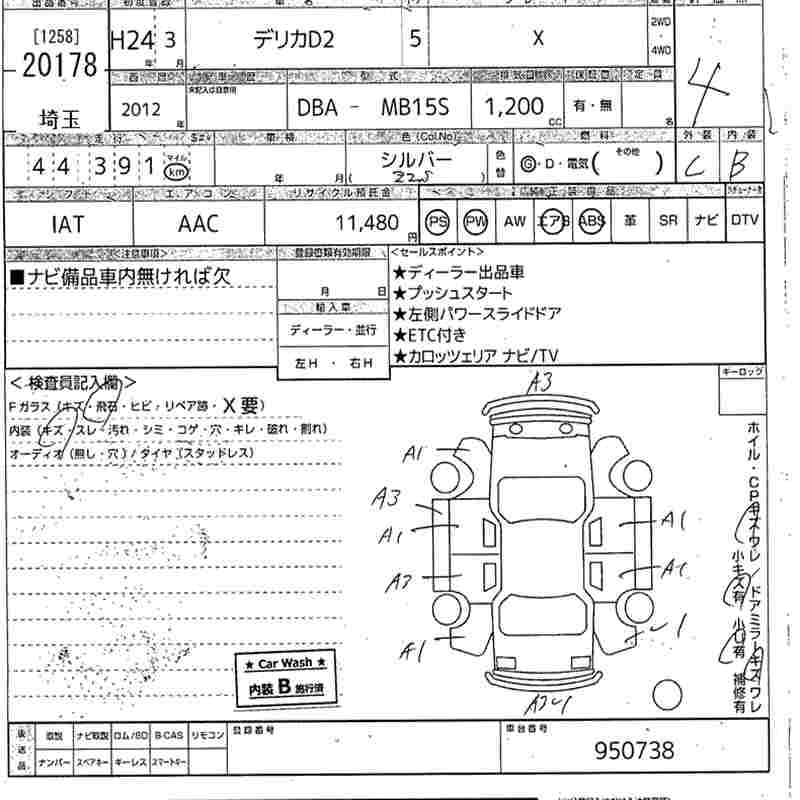 [1258]
20178
埼玉
H24 3
年 月
デリカD2
5
X
2WD
4WD
4
2012 年
DBA - MB15S
1,200 cc
有・無
名
外装 内装
44,391 マイル km
年 月(
色(Col.No)
シルバー
ZZS )
色替
燃料
G・D・電気( その他 )
C B
エアコン
リサイクル預託金
IAT
AAC
11,480 円
PS PW AW エアB ABS 革 SR ナビ DTV
<注意事項>
■ナビ備品車内無ければ欠
登録書類有効期限
月 日
輸入車
ディーラー・並行
左H ・ 右H
<セールスポイント>
★ディーラー出品車
★プッシュスタート
★左側パワースライドドア
★ETC付き
★カロッツェリア ナビ/TV
<検査員記入欄>
Fガラス(キズ・飛石・ヒビ・リペア跡・X要)
内装(キズ・スレ・汚れ・シミ・コゲ・穴・キレ・破れ・割れ)
オーディオ(無し・穴)/タイヤ(スタッドレス)
キーロック
A3
A1
A3
A1
A1
A1
A1
ホイル・CPキズワレ/ドアミラーキズワレ
小キズ有 小凹有 補修有
★ Car Wash ★
内装 B 施行済
後送品
取説 ナビ取説 ロム/SD B-CAS リモコン
ナンバー スペアキー キーレス スマートキー
登録番号
車台番号
950738